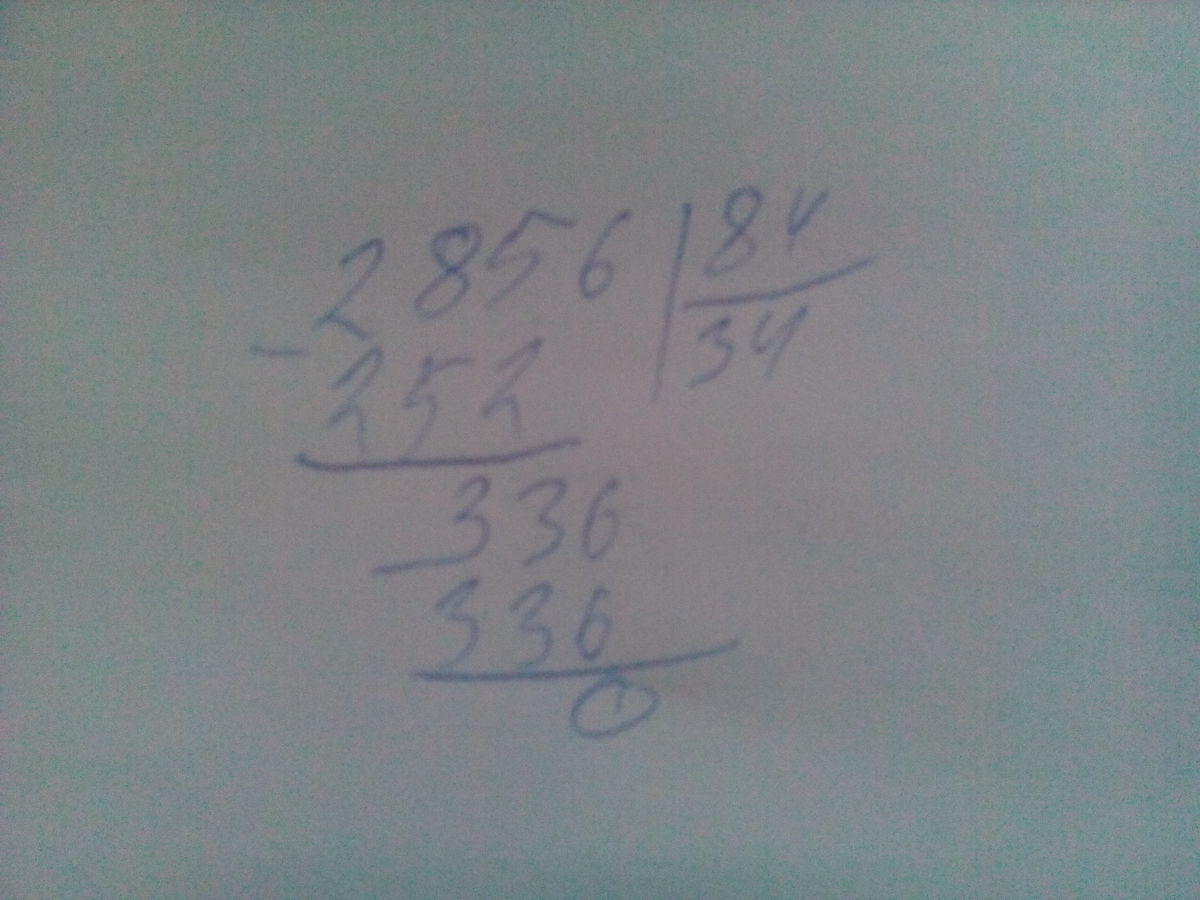 2856 | 84
34
- 252
336
- 336
0